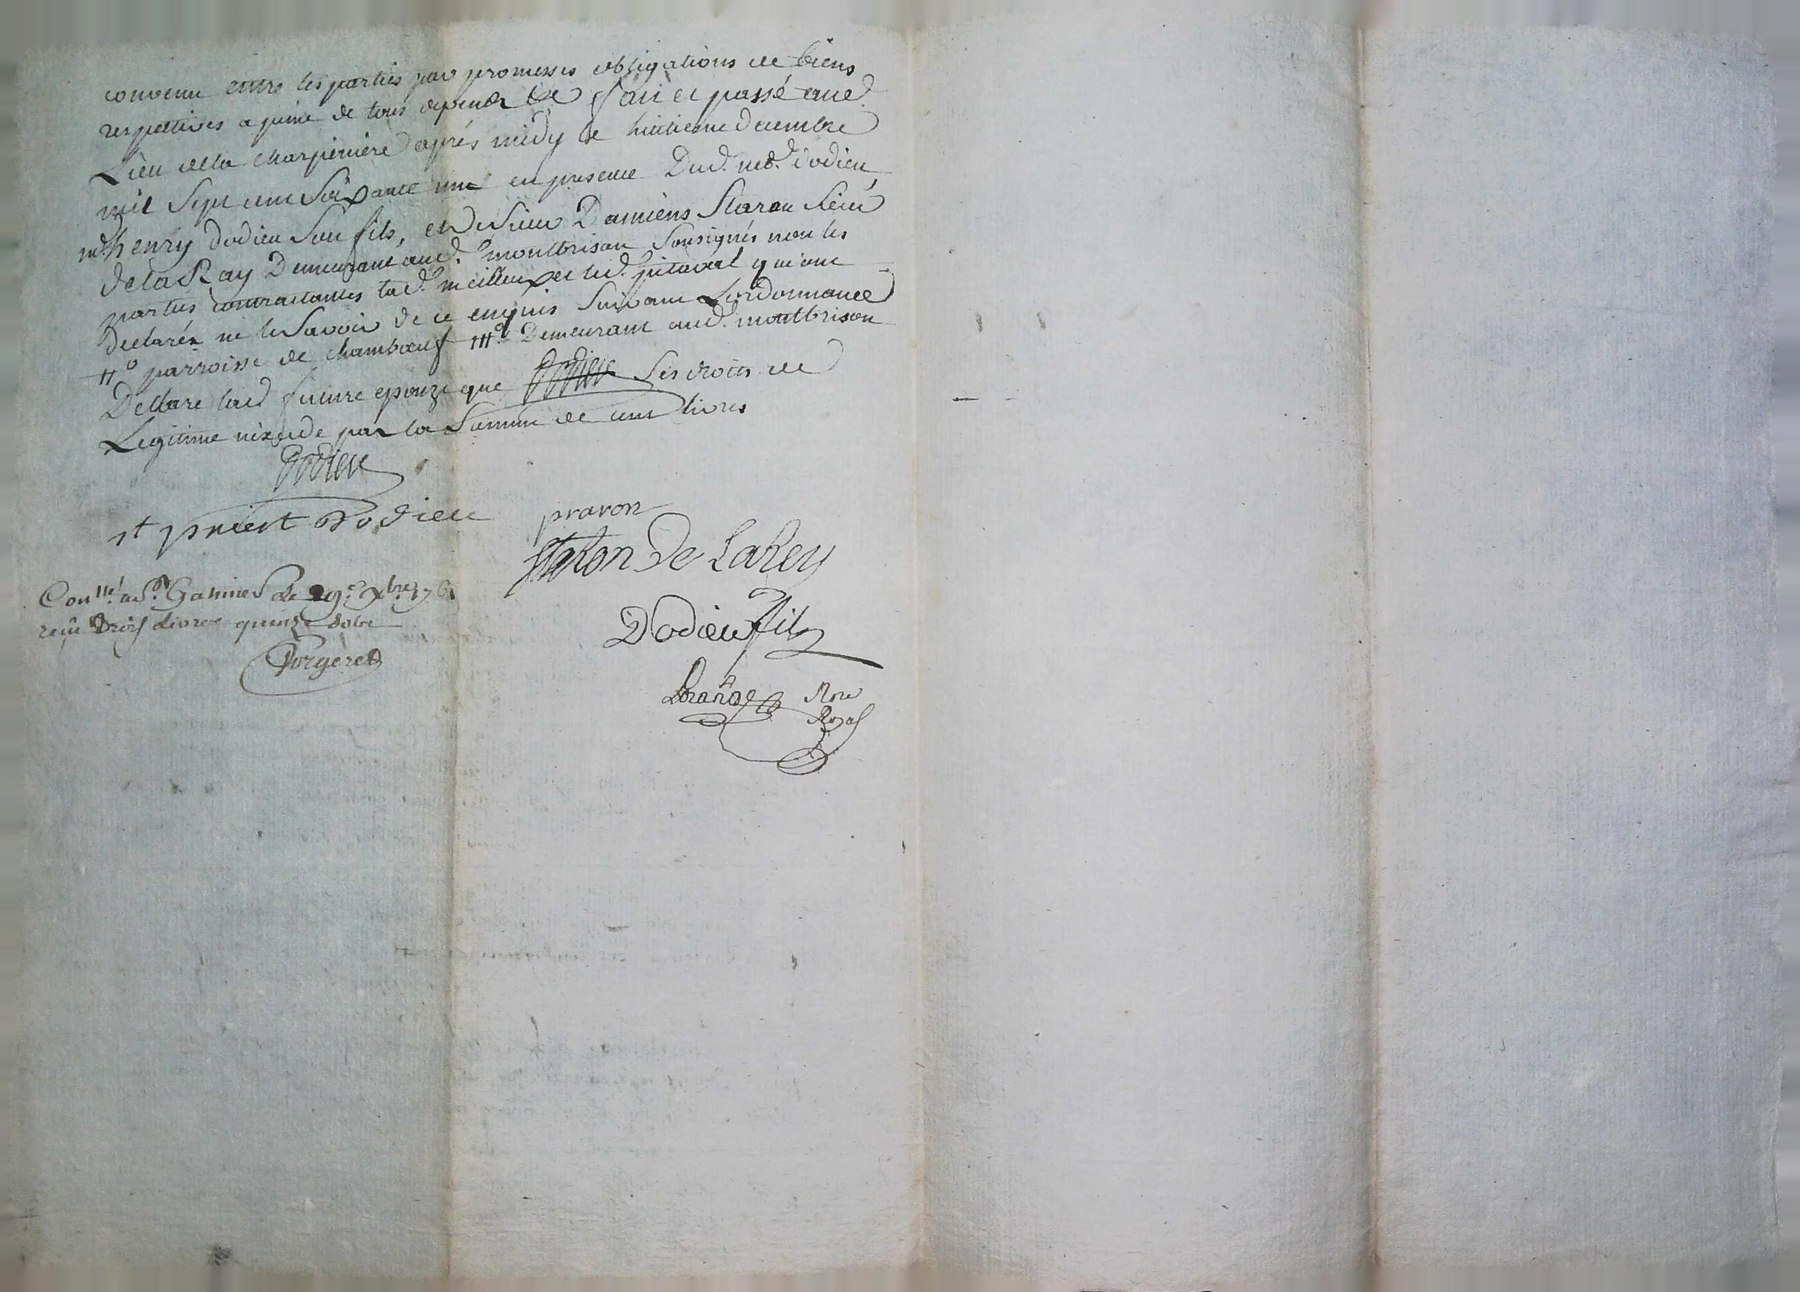 convenu entre les parties par promesses obligations de biens
respectives a peine de tous depends &c fait et passé aud.
Lieu de la charpiniere après midy le huitieme decembre
mil sept cent soixante un en presence Dud. me. dodieu
me henry dodieu son fils, et de sieur Damiens Staron sieur
de la Ray Demeurant aud. montbrison soussignés non les
parties contractantes lad. meilleux et led. pitaval qui ont
Declarés ne le savoir de ce enquis suivant Lordonnance
#° parroisse de chambœuf ###° Demeurant aud. montbrison
Declare lad future epouze que ses droits de
Legitime n'excede par la Somme de cent livres
Dodieu
st priest Dodieu pravon
Staron De LaRey
Con.lle a St. Galmier Le 19e Xbre 1761
reçu trois livres quinze sols
Dodieu fils
Forgeres
Nore
Royal